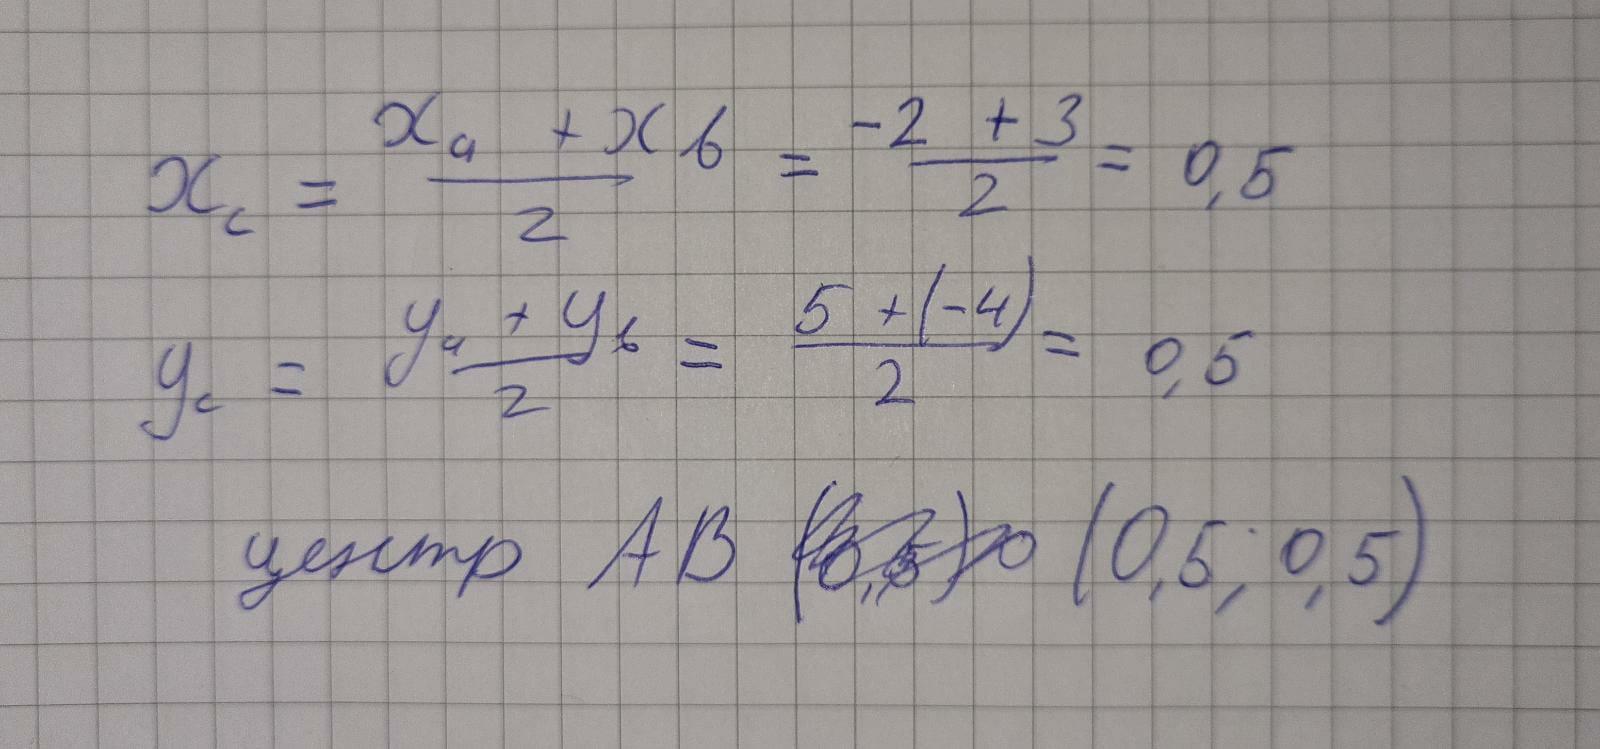 x_c = (x_a + x_b)/2 = (-2 + 3)/2 = 0,5
y_c = (y_a + y_b)/2 = (5 + (-4))/2 = 0,5
центр AB (0,5; 0,5)